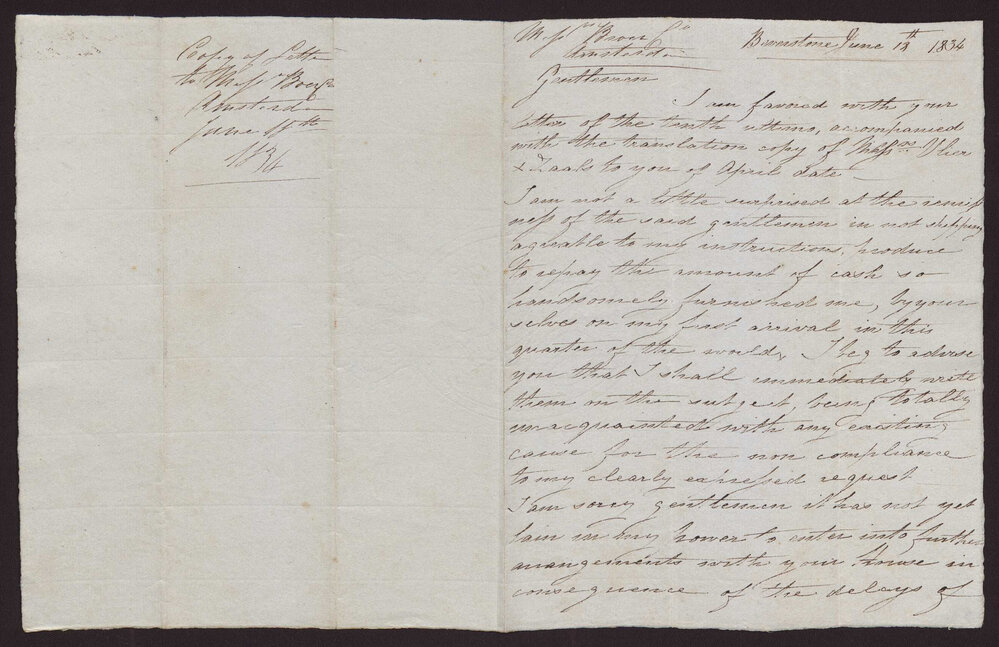 Copy of Letter
to Mess Boer
Amsterda
June
1834
Mess Boer
Amsterda
Gentlemen
Beverstone June 1834
I am favored with your
letter of the tenth ultimo, accompanied
with the translation copy of Mess.rs
& Zaals to you of April date
I am not a little surprised at the remiss
ness of the said gentlemen in not shipping
agreable to my instructions, produce
to repay the amount of cash so
handsomely furnished me, by your
selves on my first arrival in this
quarter of the world, I beg to advise
you that I shall immediately write
them on the subject, being totally
unacquainted with any existing
cause for the non compliance
to my clearly expressed request
I am sorry gentlemen it has not yet
lain in my power to enter into further
arrangements with your house in
consequence of the delays of